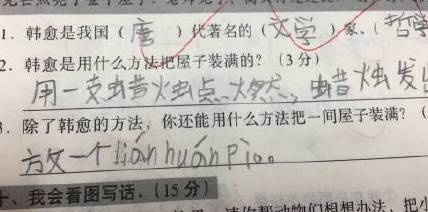 1. 韩愈是我国（唐）代著名的（文学）家、（哲学
2. 韩愈是用什么方法把屋子装满的？（3分）
用一支蜡烛点燃，蜡烛发
3. 除了韩愈的方法，你还能用什么方法把一间屋子装满？（
放一个lián huán pìo。
十、我会看图写话.（15分）
请你帮动物们想想办法，把小